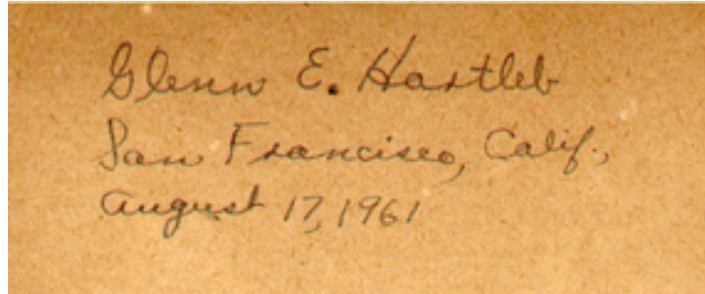 Glenn E. Hartleb
San Francisco, Calif.,
August 17, 1961